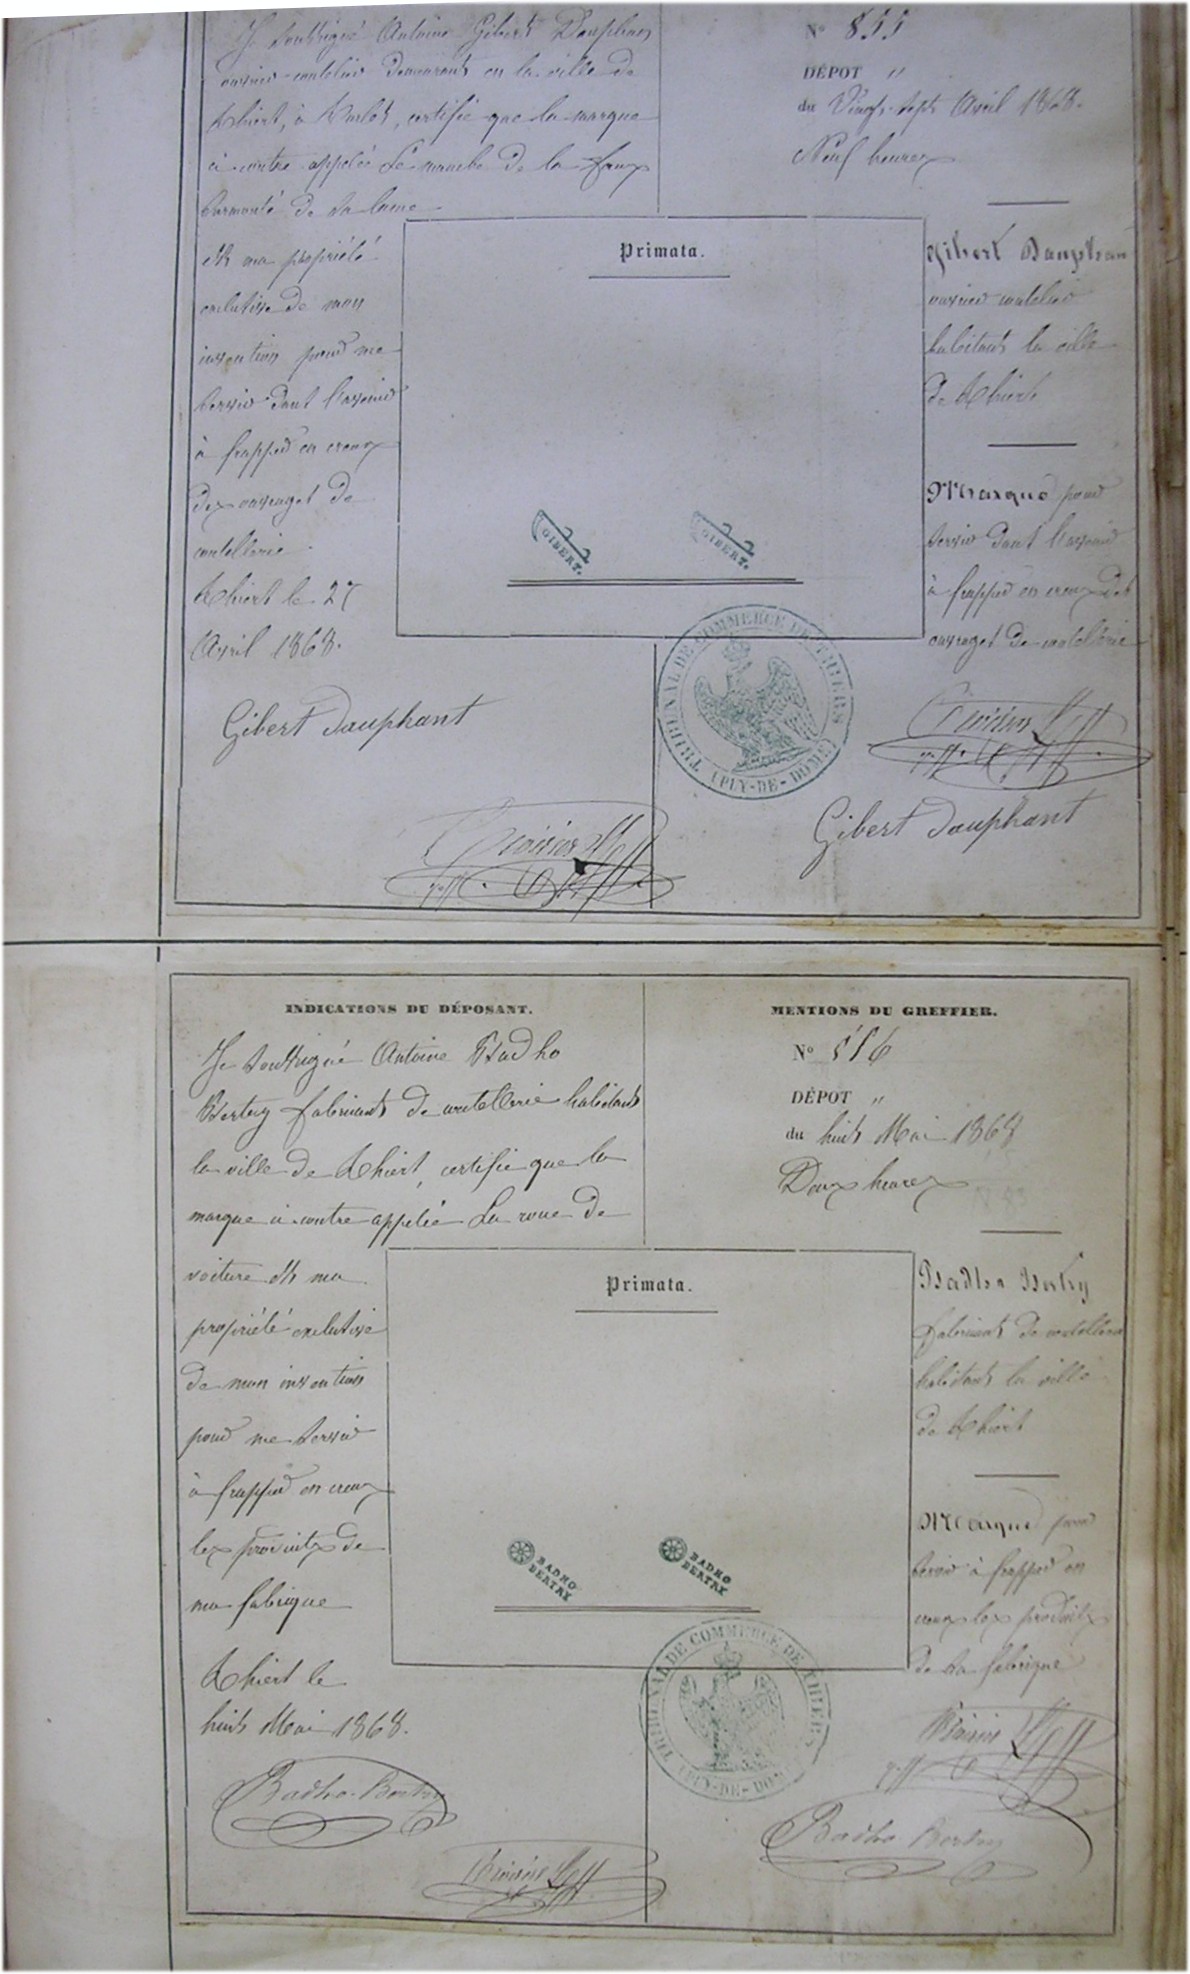 Je soussigné Antoine Gibert Dauphant
ouvrier coutelier demeurant en la ville de
Thiers, à , certifie que la marque
ci contre appelée Le manche de la faux
surmonté de sa lame
est ma propriété
exclusive de mon
invention pour me
servir dans l'avenir
à frapper en creux
des ouvrages de
coutellerie.
Thiers le 27
Avril 1868.
Gibert Dauphant
N° 855
DÉPOT "
du Vingt-sept Avril 1868.
Neuf heures
Primata.
GIBERT.
GIBERT.
Gibert Dauphant
ouvrier coutelier
habitant la ville
de Thiers
Marque pour
servir dans l'avenir
à frapper en creux des
ouvrages de coutellerie
TRIBUNAL DE COMMERCE DE THIERS
(PUY-DE-DOME)
Gibert Dauphant
INDICATIONS DU DÉPOSANT.
Je soussigné Antoine Badho
Bertry fabricant de coutellerie habitant
la ville de Thiers, certifie que la
marque ci-contre appelée La roue de
voiture est ma
propriété exclusive
de mon invention
pour me servir
à frapper en creux
les produits de
ma fabrique
Thiers le
huit Mai 1868.
Badho-Bertry
MENTIONS DU GREFFIER.
N° 856
DÉPOT "
du huit Mai 1868
Deux heures
Primata.
BADHO
BERTRY
BADHO
BERTRY
Badho Bertry
fabricant de coutellerie
habitant la ville
de Thiers
Marque pour
servir à frapper en
creux les produits
de sa fabrique
TRIBUNAL DE COMMERCE DE THIERS
(PUY-DE-DOME)
Badho-Bertry